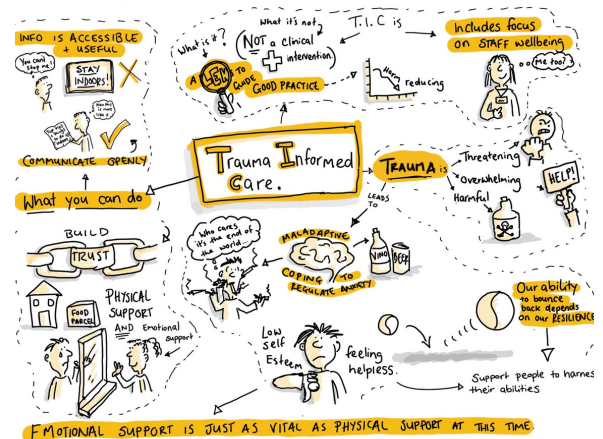 INFO IS ACCESSIBLE
+ USEFUL
You can't
stop me!
STAY
INDOORS!
COMMUNICATE OPENLY
What you can do
What is it?
A LENS TO
GUIDE
GOOD PRACTICE
What it's not
(NOT a clinical
intervention.)
T.I.C is
Harm
reducing
Includes focus
on STAFF wellbeing
Me too?
Trauma Informed
Care.
TRAUMA is
Threatening
Overwhelming
Harmful
HELP!
LEADS
TO
MALADAPTIVE
COPING TO
REGULATE ANXIETY
VINO
BEER
Who cares
it's the end of
the world...
BUILD
TRUST
FOOD
PARCEL
PHYSICAL
SUPPORT
AND Emotional
Support
Low
self
Esteem
feeling
helpless.
Our ability
to bounce
back depends
on our RESILIENCE
Support people to harness
their abilities
EMOTIONAL SUPPORT IS JUST AS VITAL AS PHYSICAL SUPPORT AT THIS TIME.